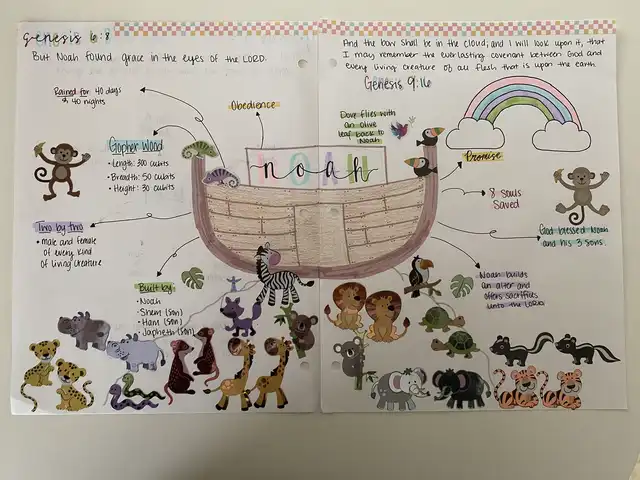 genesis 6:8
But Noah found grace in the eyes of the LORD.
And the bow shall be in the cloud; and I will look upon it, that
I may remember the everlasting covenant between God and
every living creature of all flesh that is upon the earth
Genesis 9:16
Rained for 40 days
& 40 nights
Obedience
Gopher Wood
• Length: 300 cubits
• Breadth: 50 cubits
• Height: 30 cubits
NOAH
noah
Dove flies with
an olive
leaf back to
Noah
Promise
8 souls
Saved
God blessed Noah
and his 3 sons.
Two by two
• male and female
of every kind
of living creature
Built by:
• Noah
• Shem (son)
• Ham (son)
• Japheth (son)
Noah builds
an alter and
offers sacrifices
unto the LORD